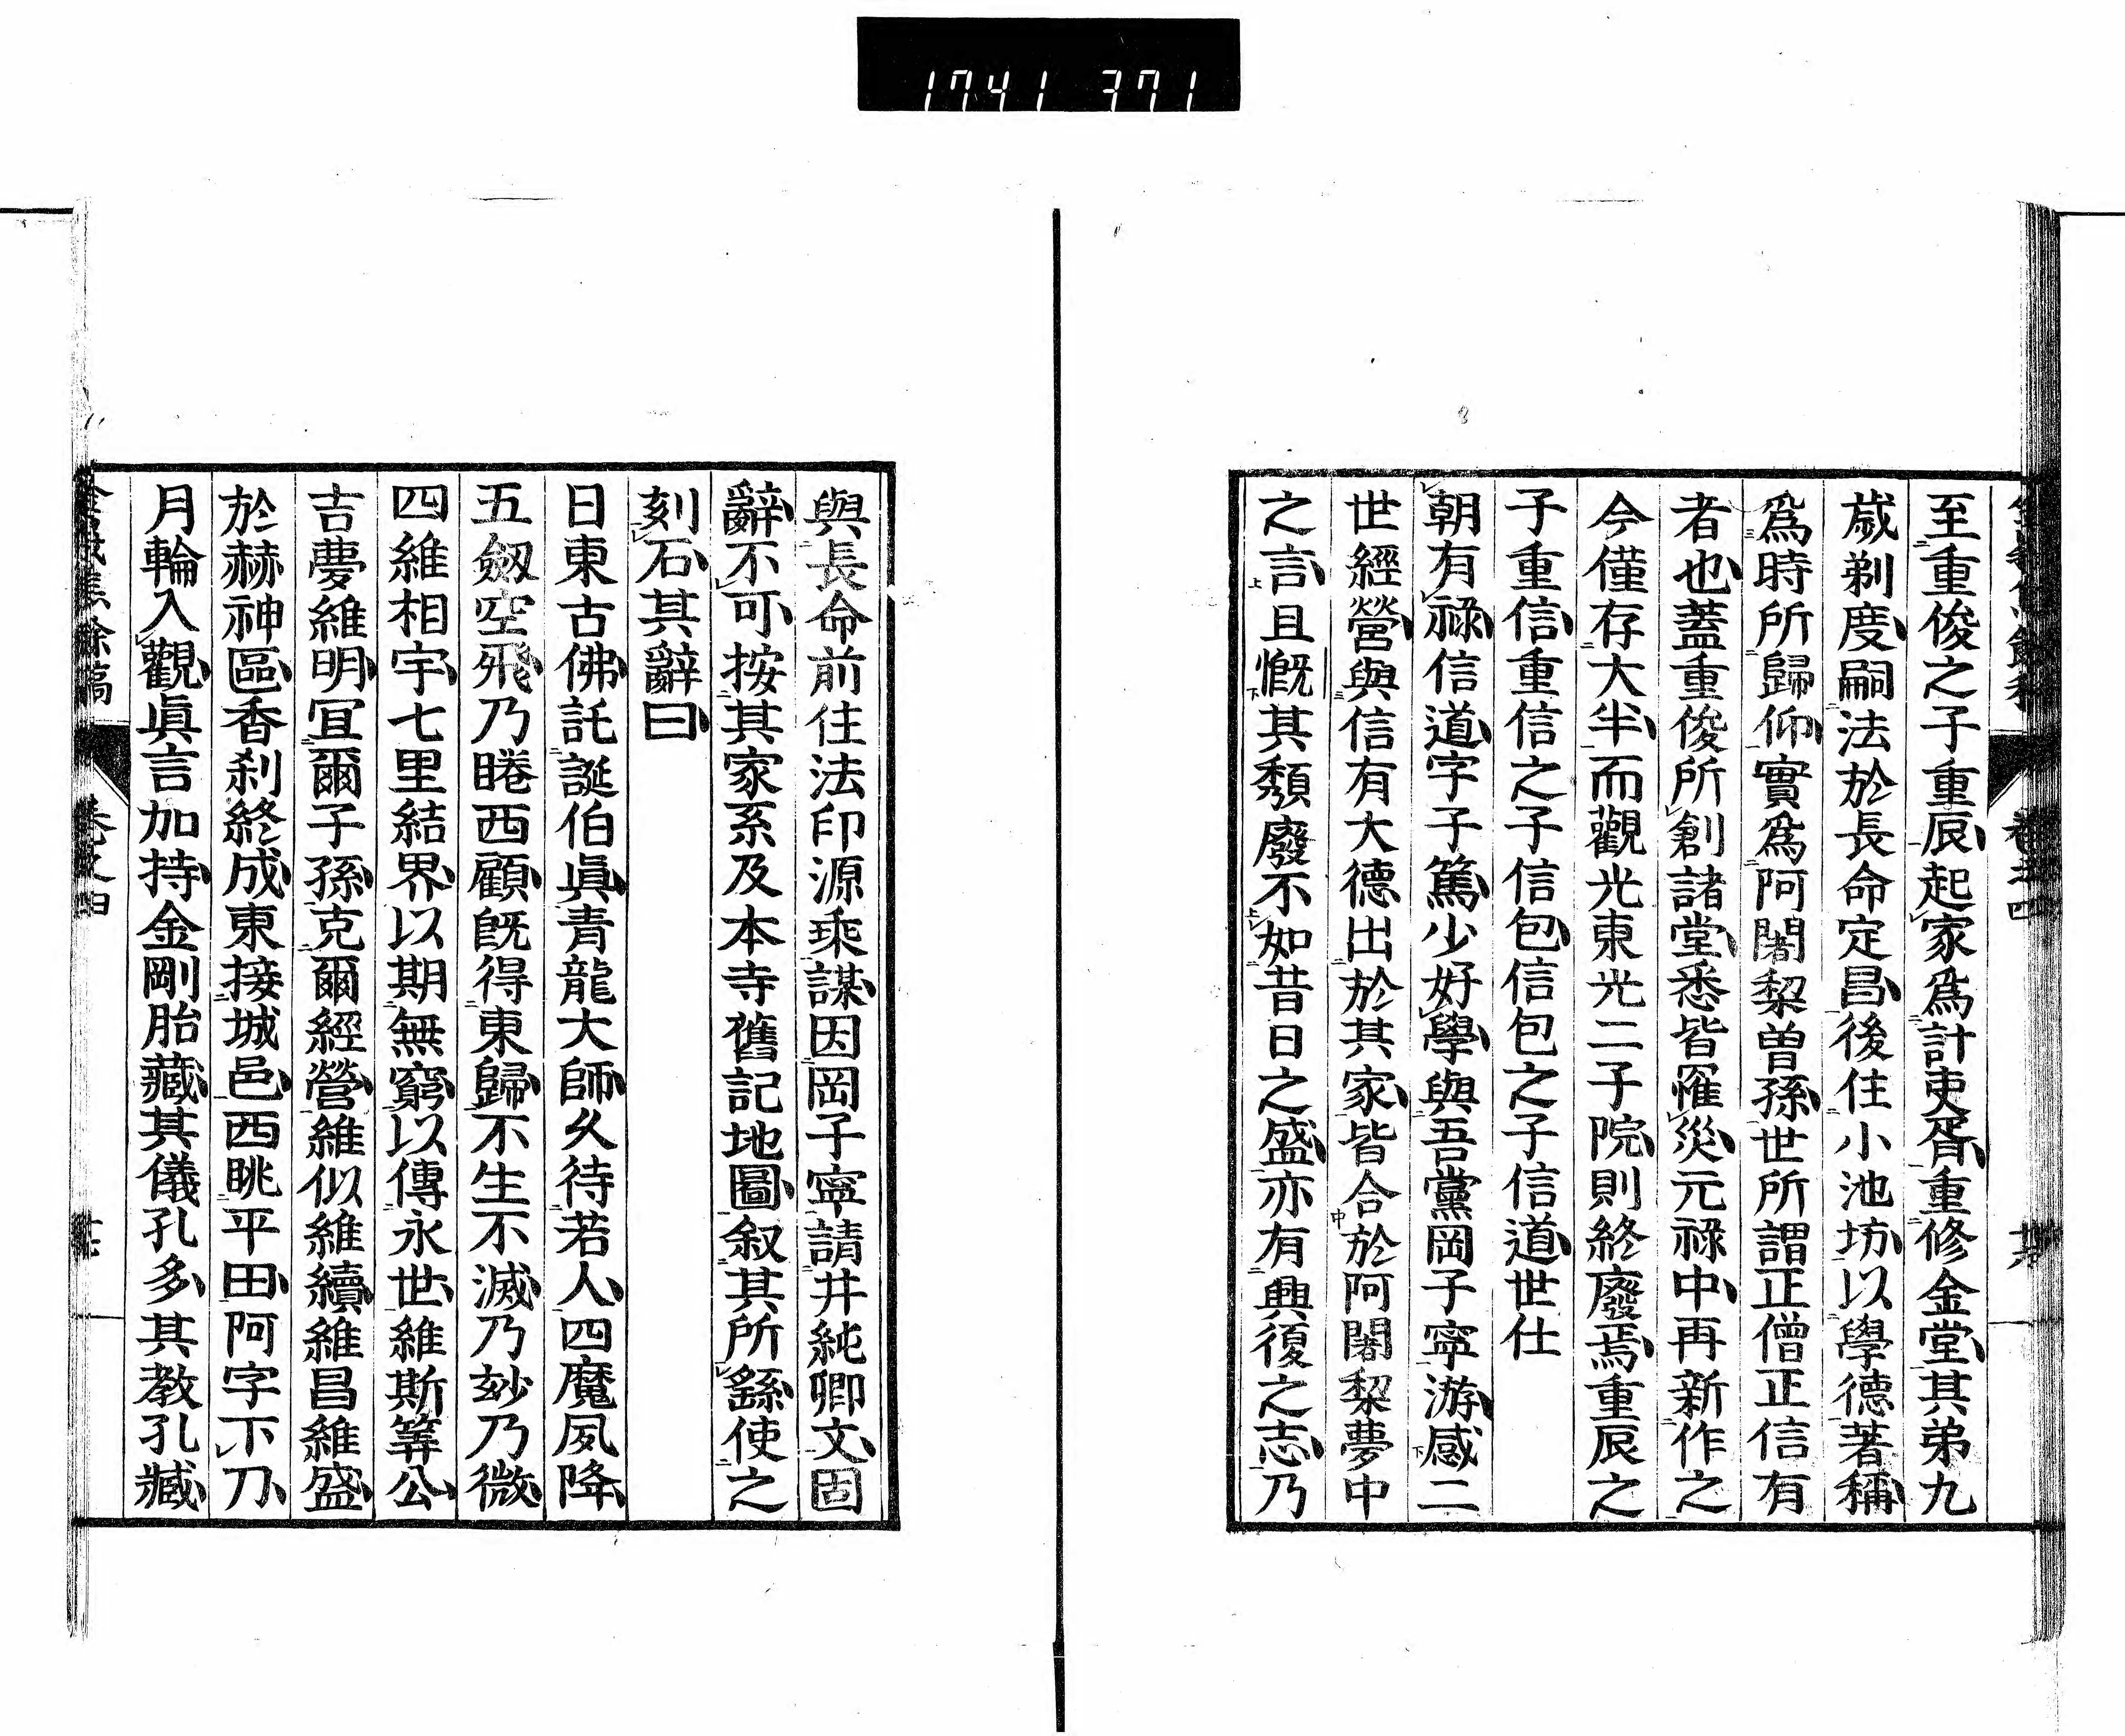 1741 371
至重俊之子重辰起家爲計吏胥重修金堂其弟九
歲剃度嗣法於長命定昌後住小池坊以學德著稱
爲時所歸仰實爲阿闍梨曾孫世所謂正僧正信有
者也蓋重俊所創諸堂悉皆罹災元祿中再新作之
今僅存大半而觀光東光二子院則終廢焉重辰之
子重信重信之子信包信包之子信道世仕
朝有祿信道字子篤少好學與吾黨岡子寧游感二
世經營與信有大德出於其家皆合於阿闍梨夢中
之言且慨其頽廢不如昔日之盛亦有興復之志乃
與長命前住法印源乘謀因岡子寧請井純卿文固
辭不可按其家系及本寺舊記地圖叙其所繇使之
刻石其辭曰
日東古佛託誕伯眞青龍大師久待若人四魔夙降
五劔空飛乃睠西顧既得東歸不生不滅乃玅乃微
四維相宇七里結界以期無窮以傳永世維斯筭公
吉夢維明冝爾子孫克爾經營維似維續維昌維盛
於赫神區香刹終成東接城邑西眺平田阿字下刀
月輪入觀眞言加持金剛胎藏其儀孔多其教孔臧
餘稿
卷之四